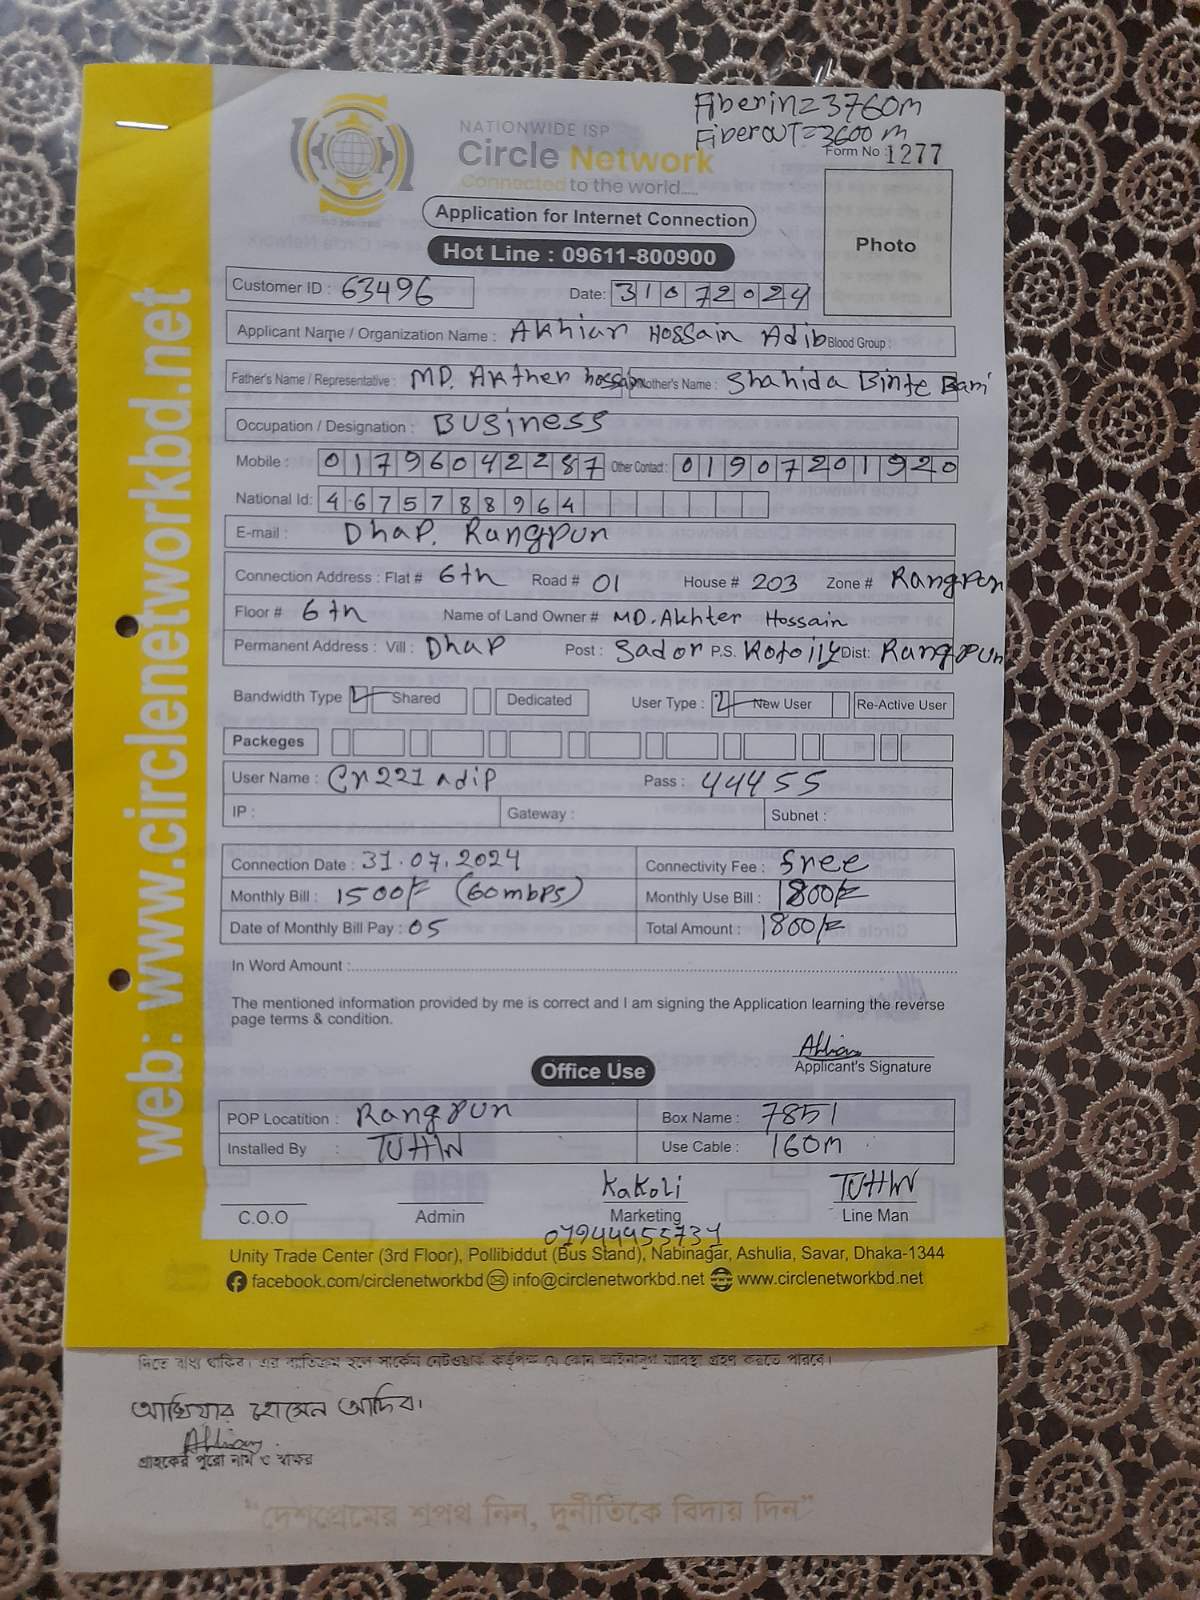 Fiberin=3760m
FiberouT=3600m
NATIONWIDE ISP
Circle Network
Connected to the world.....
Form No : 1277
Application for Internet Connection
Hot Line : 09611-800900
Photo
Customer ID : 63496 Date: 31072024
Applicant Name / Organization Name : Akhiar Hossain Adib Blood Group :
Father's Name / Representative : MD. Akther hossain Mother's Name : Shahida Binte Bari
Occupation / Designation : Business
Mobile : 01796042287 Other Contact : 01907201920
National Id: 4675788964
E-mail : Dhap. Rangpur
Connection Address : Flat # 6th Road # 01 House # 203 Zone # Rangpur
Floor # 6th Name of Land Owner # MD. Akhter Hossain
Permanent Address : Vill : Dhap Post : Sador P.S. Dist: Rangpur
Bandwidth Type Shared Dedicated User Type : New User Re-Active User
Packeges
User Name : Cr221adip Pass : 44455
IP : Gateway : Subnet :
Connection Date : 31.07.2024 Connectivity Fee : free
Monthly Bill : 1500/= (60mbps) Monthly Use Bill : 1800/=
Date of Monthly Bill Pay : 05 Total Amount : 1800/=
In Word Amount :
The mentioned information provided by me is correct and I am signing the Application learning the reverse
page terms & condition.
Applicant's Signature
Office Use
POP Locatition : Rangpur Box Name : 7851
Installed By : TUHIN Use Cable : 160m
Kakoli TUHIN
C.O.O Admin Marketing Line Man
01944955731
Unity Trade Center (3rd Floor), Pollibiddut (Bus Stand), Nabinagar, Ashulia, Savar, Dhaka-1344
facebook.com/circlenetworkbd info@circlenetworkbd.net www.circlenetworkbd.net
web: www.circlenetworkbd.net
দিতে বাধ্য থাকিব। এর ব্যতিক্রম হলে সার্কেল নেটওয়ার্ক কর্তৃপক্ষ যে কোন আইনানুগ ব্যবস্থা গ্রহণ করতে পারবে।
আখিয়ার হোসেন আদিব।
গ্রাহকের পুরো নাম ও স্বাক্ষর
“দেশপ্রেমের শপথ নিন, দুর্নীতিকে বিদায় দিন”